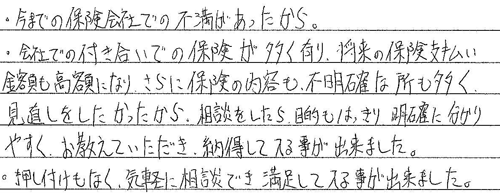 ・今までの保険会社での不満があったから。
・会社での付き合いでの保険が多く有り、将来の保険支払い
金額も高額になり、さらに保険の内容も、不明確な所も多く、
見直しをしたかったから、相談をしたら、目的もはっきり明確に分かり
やすく、お教えていただき、納得して入る事が出来ました。
・押し付けもなく、気軽に相談でき満足して入る事が出来ました。